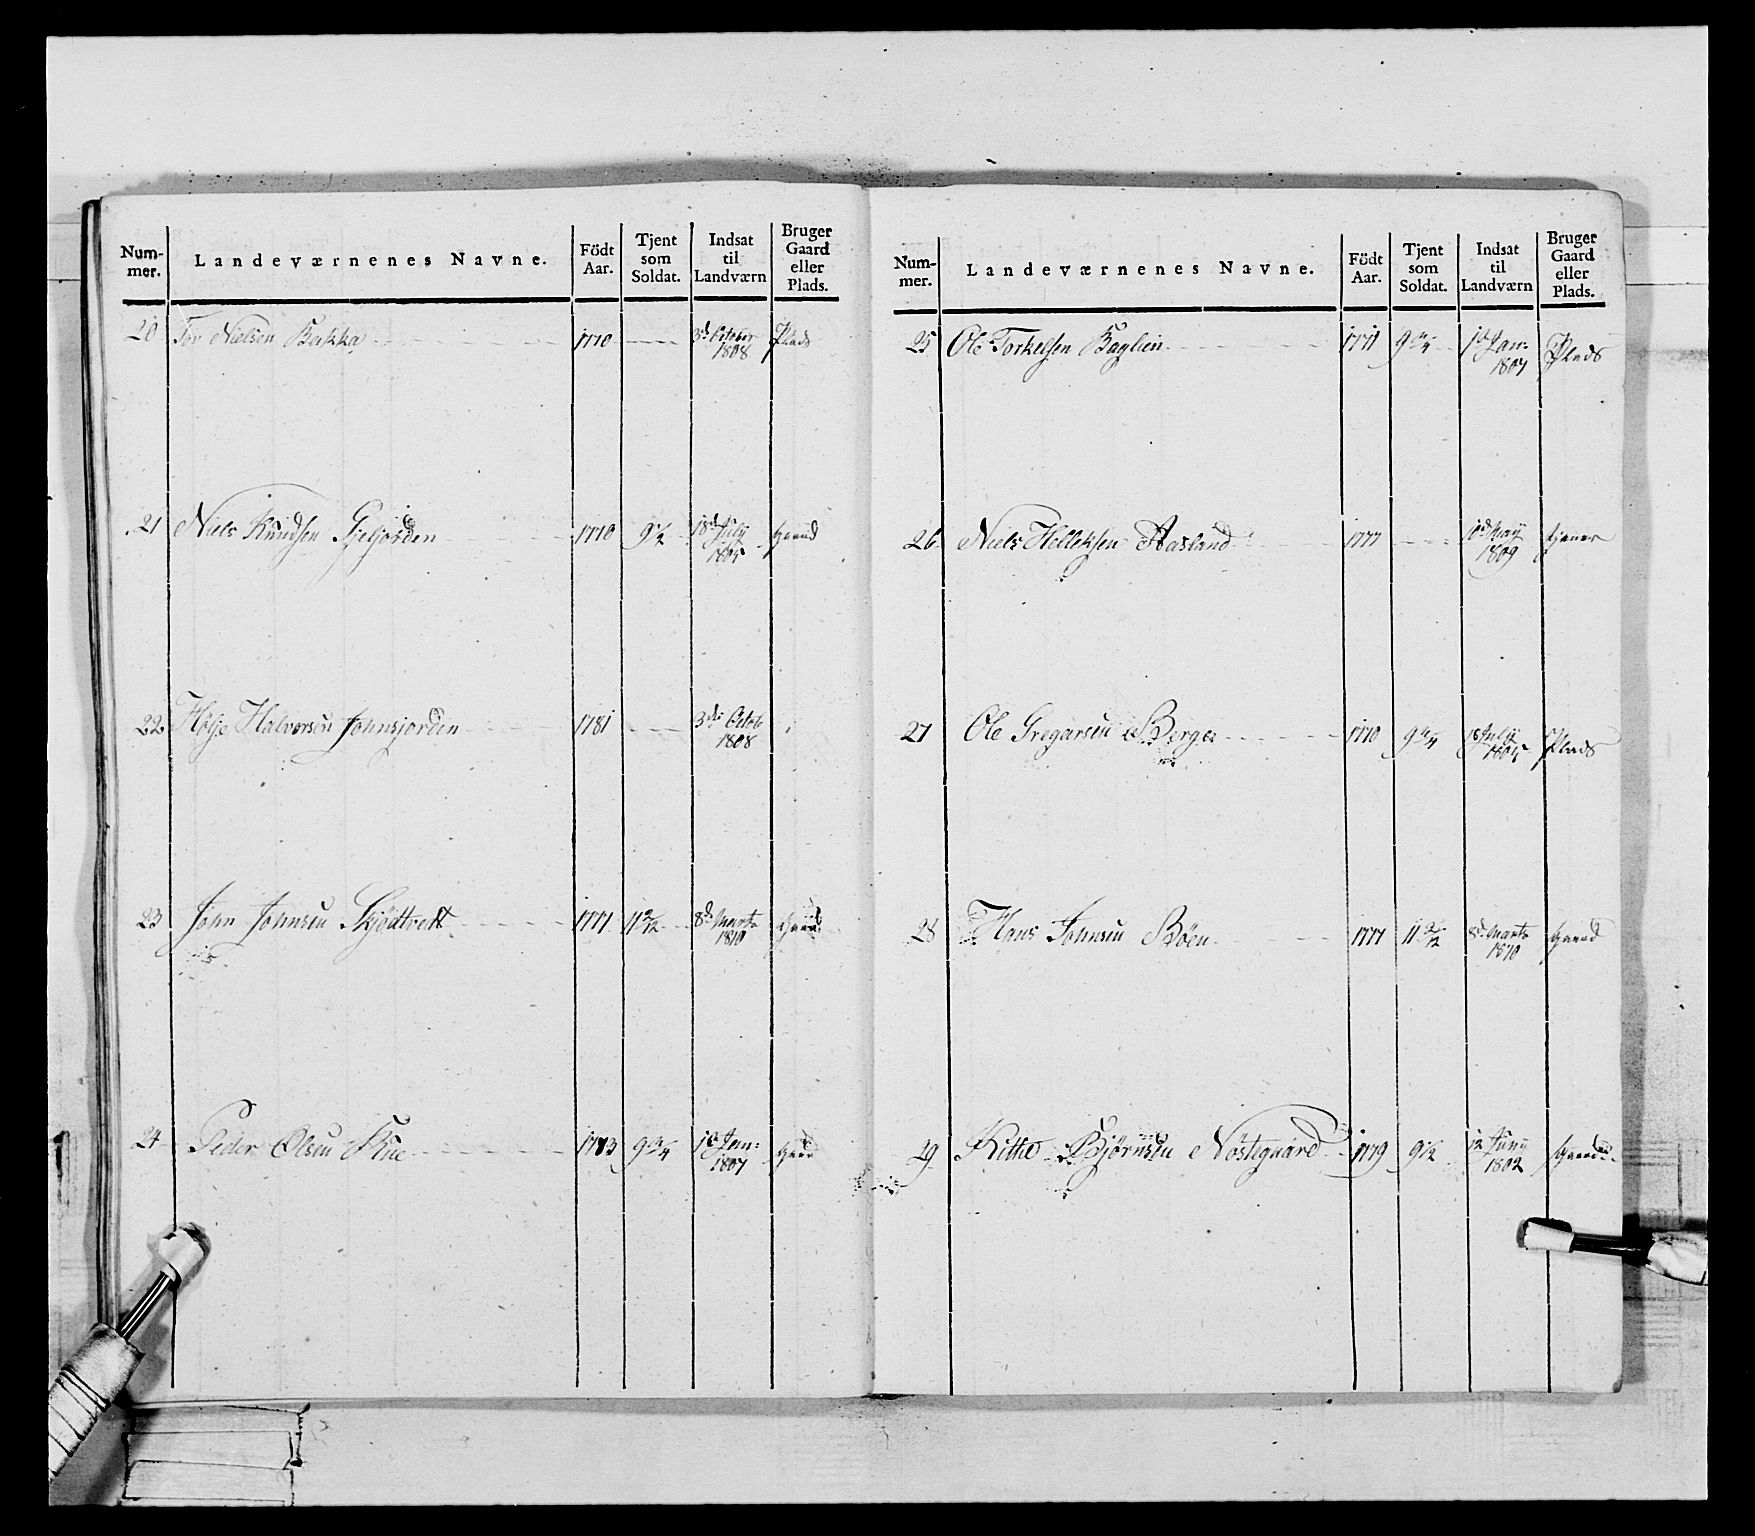 Num-
mer.
Landeværnenes Navne.
Födt
Aar.
Tjent
som
Soldat.
Indsat
til
Landværn
Bruger
Gaard
eller
Plads.
20 Tor Nielsen Bakka 1770 3d October Plads
1808
21 Niels Knudsen 1770 9½ 18d July Gaard
1805
22 Halvorsen Johnsjorden 1781 3d Octob
1808
23 John Johnsen Skjödtvedt 1771 11 2/12 8d Marts Gaard
1810
24 Peder Olsen 1773 9¾ 1d Jan: Gaard
1807
Num-
mer.
Landeværnenes Navne.
Födt
Aar.
Tjent
som
Soldat.
Indsat
til
Landværn
Bruger
Gaard
eller
Plads.
25 Ole Torkelsen Baglien 1771 9¾ 1d Jan: Plads
1807
26 Niels Helleksen Aasland 1777 10d May tjener
1809
27 Ole Gregarsen Berge 1770 9¾ 18 July Plads
1805
28 Hans Johnsen Böen 1777 11 2/12 8d Marts Gaard
1810
29 Kittel Björnsen Nöstegaard 1779 9½ 12 Juny Gaard
1802